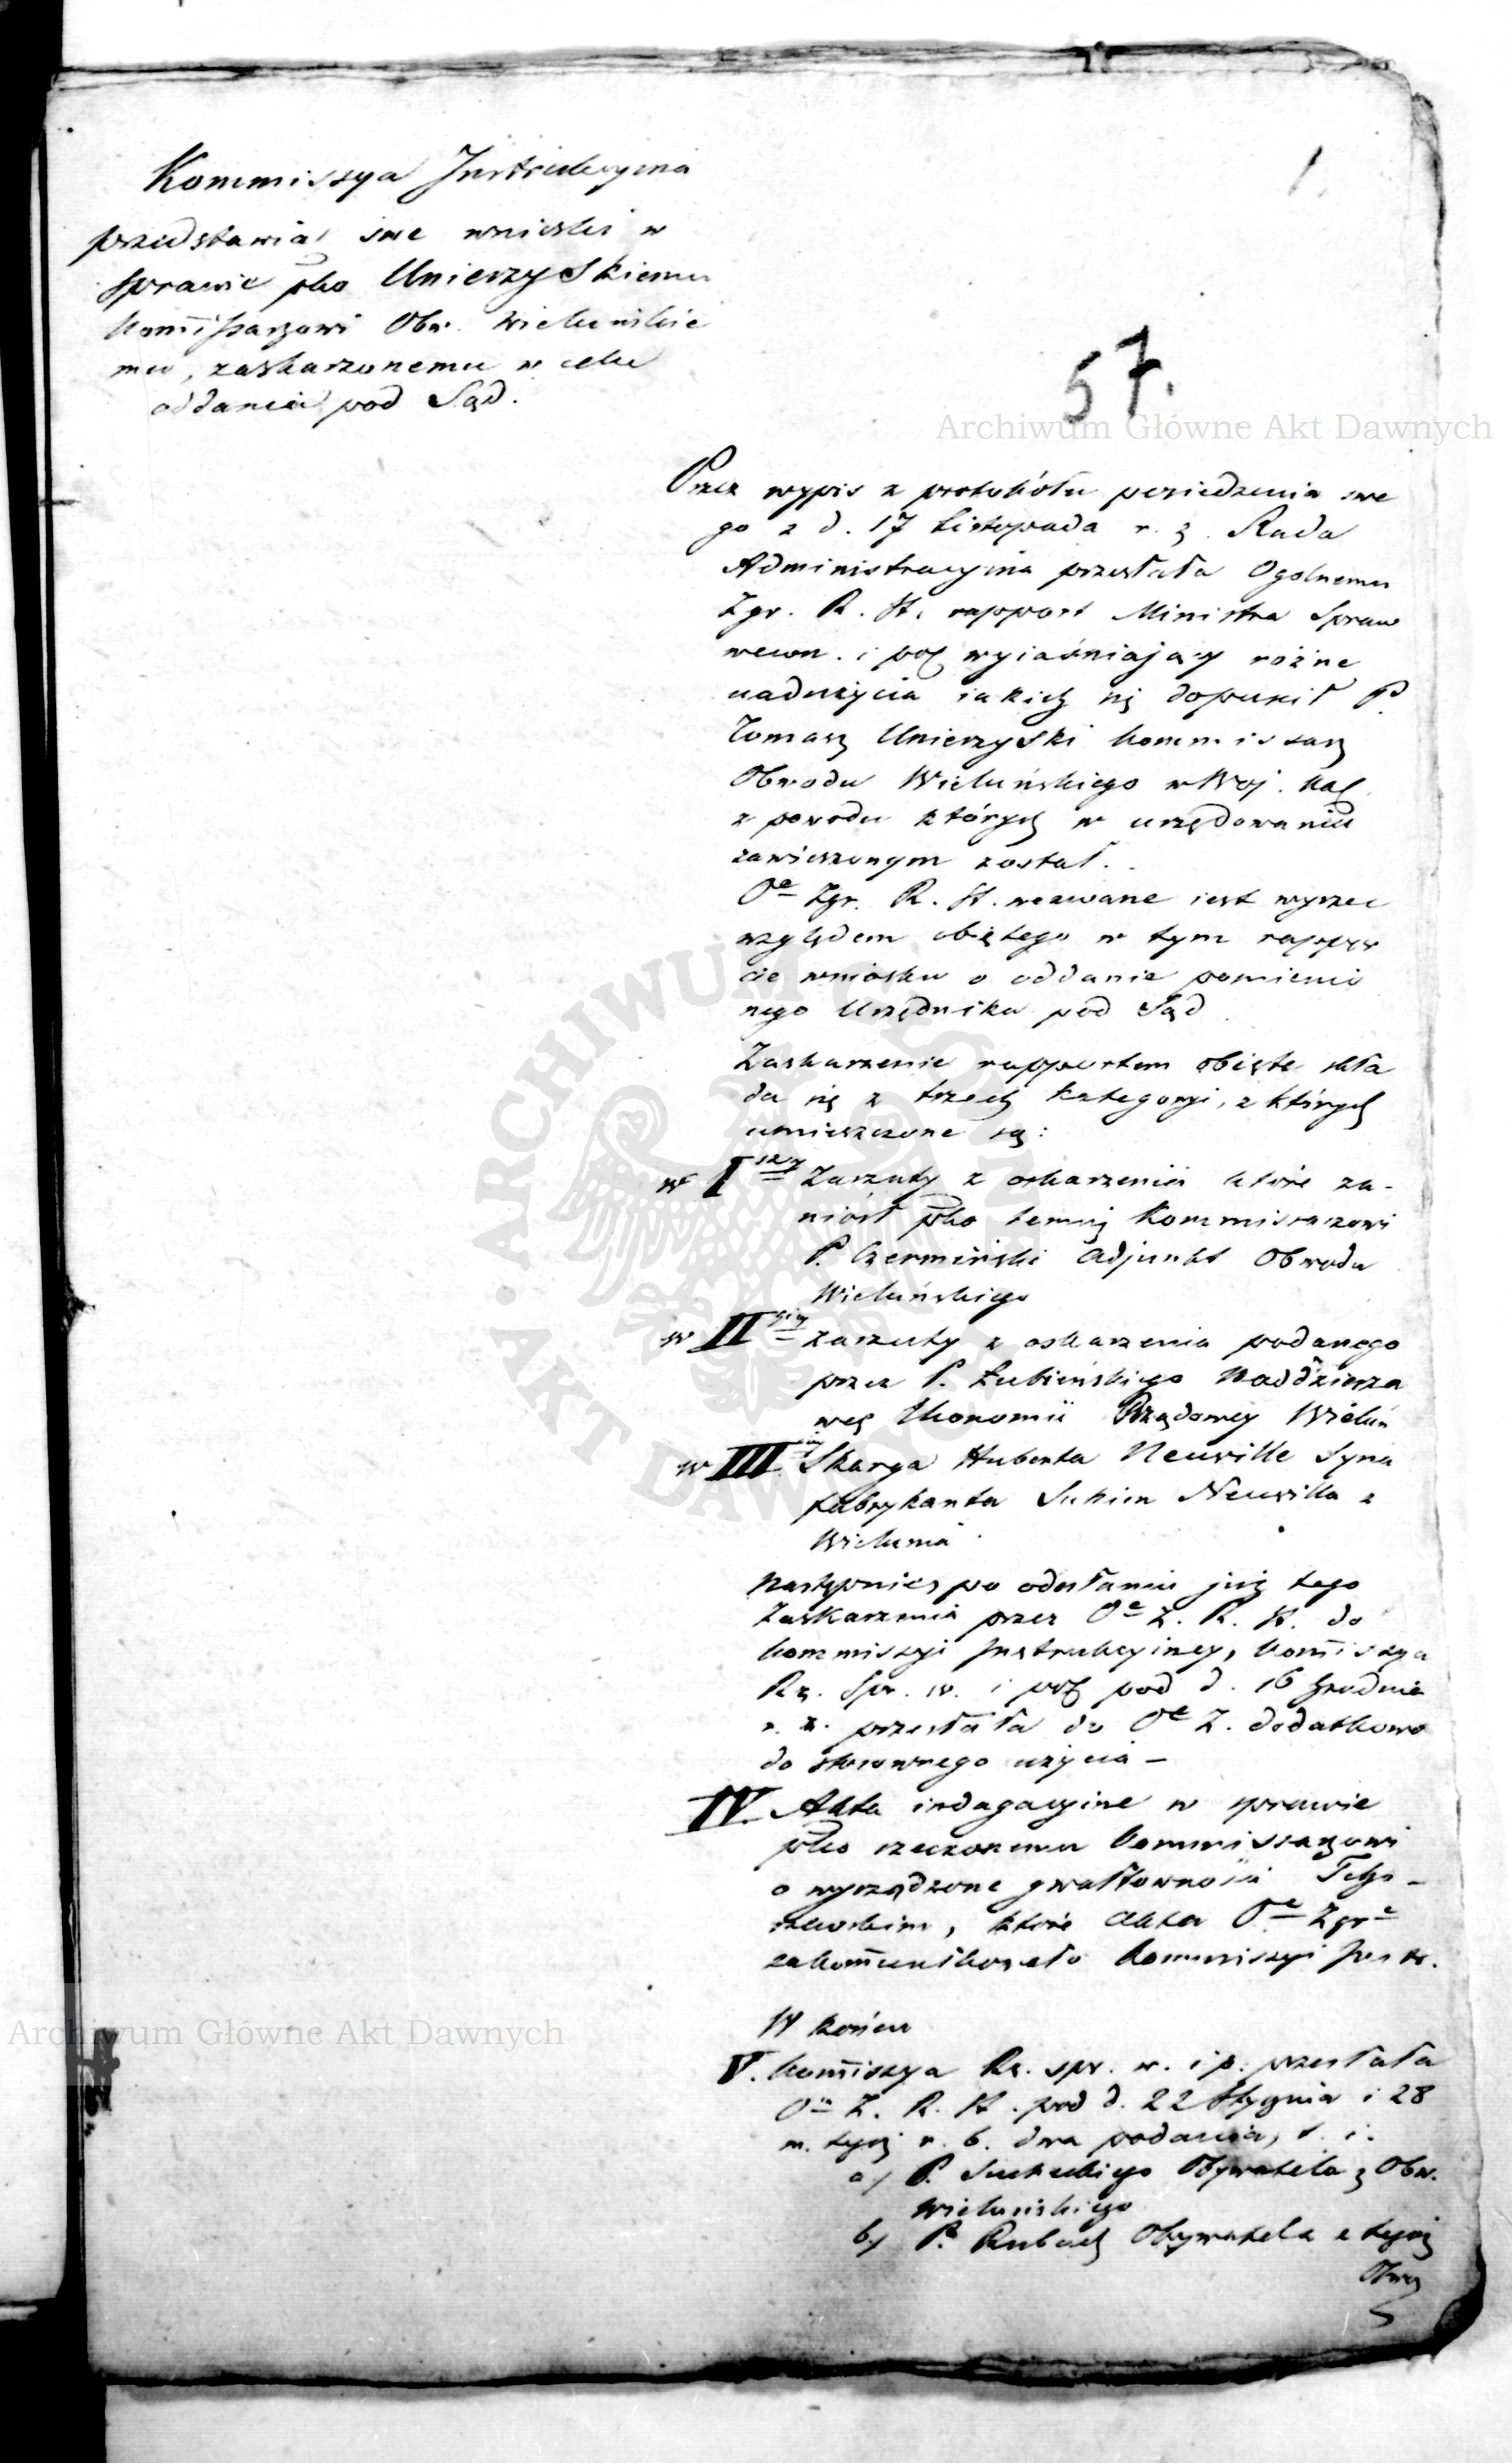 1.
Kommissya Instrukcyina
przedstawia swe wnioski w
sprawie pko Unierzyskiemu
Kommissarzowi Obw. Wieluńskie
mu, zaskarzonemu w celu
oddania pod Sąd.
57.
Archiwum Główne Akt Dawnych
Przez wypis z protokółu posiedzenia swe
go z d. 17 Listopada r. z. Rada
Administracyina przesłała Ogolnemu
Zgr. R. St. rapport Ministra Spraw
wewn. i pol wyiaśniaiący różne
nadużycia iakich się dopuścił P.
Tomasz Unierzyski Kommissarz
Obwodu Wieluńskiego w Woj. Kal.
z powodu których w urzędowaniu
zawieszonym został.
Oe Zgr. R. St. wezwane iest wyrzec
względem obiętego w tym rappor
cie wniosku o oddanie pomienio
nego Urzędnika pod Sąd.
Zaskarzenie rapportem obięte skła
da się z trzech kategoryi, z których
umieszczone są:
w I szey Zarzuty z oskarzenia które za-
niósł pko temuż Kommissarzowi
P. Czermiński Adjunkt Obwodu
Wieluńskiego
w II giey zarzuty z oskarzenia podanego
przez P. Łubieńskiego Naddzierza
wcę Ekonomii Rządowey Wieluń
w III ciey Skarga Huberta Neuville Syna
fabrykanta Sukien Neuvilla z
Wielunia
Następnie po odesłaniu już tego
Zaskarzenia przez Oe Z. R. St. do
Kommissyi Instrukcyiney, Kommissya
Rz. Spr. w. i pol pod d. 16 Grudnia
r. z. przesłała do Oe Z. dodatkowo
do stosownego użycia –
IV. Akta indagacyine w sprawie
pko rzeczonemu Kommissarzowi
o wyrządzone gwałtowności
które Akta Oe Zgre
zakommunikowało Kommissyi Instr.
W końcu
V. Kommissya Rz. spr. w. i p. przesłała
Ou Z. R. St. pod d. 22 Stycznia i 28
m. tegoż r. b. dwa podania, t. i.
a/ P. Suchckiego Obywatela z Obw.
Wieluńskiego
b/ P. Rubach Obywatela z tegoż
Obwo
Archiwum Główne Akt Dawnych
ARCHIWUM GŁÓWNE AKT DAWNYCH